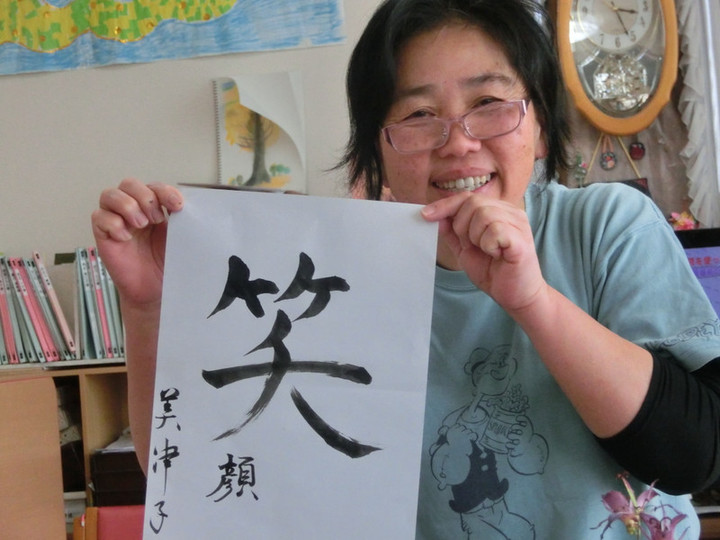 笑
顔
美津子